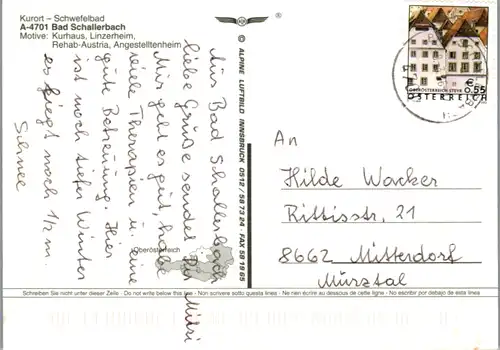 Kurort – Schwefelbad
A-4701 Bad Schallerbach
Motive: Kurhaus, Linzerheim,
Rehab-Austria, Angestelltenheim
Aus Bad Schallerbach
liebe Grüße sendet Dir Mitzi
Mir geht es gut, habe
viele Therapien u. eine
gute Betreuung. Hier
ist noch tiefer Winter
es liegt noch 1/2 m.
Schnee
Oberösterreich
© ALPINE LUFTBILD INNSBRUCK 0512 / 58 73 24 FAX 58 18 65
€ 0,55
OBERÖSTERREICH STEYR
ÖSTERREICH
An
Hilde Wocker
Rittisstr. 21
8662 Mitterdorf
Mürztal
Schreiben Sie nicht unter dieser Zeile - Do not write below this line - Non scrivere sotto questa linea - Ne rien écrire au dessous de cette ligne - No escribir por debajo de esta linea